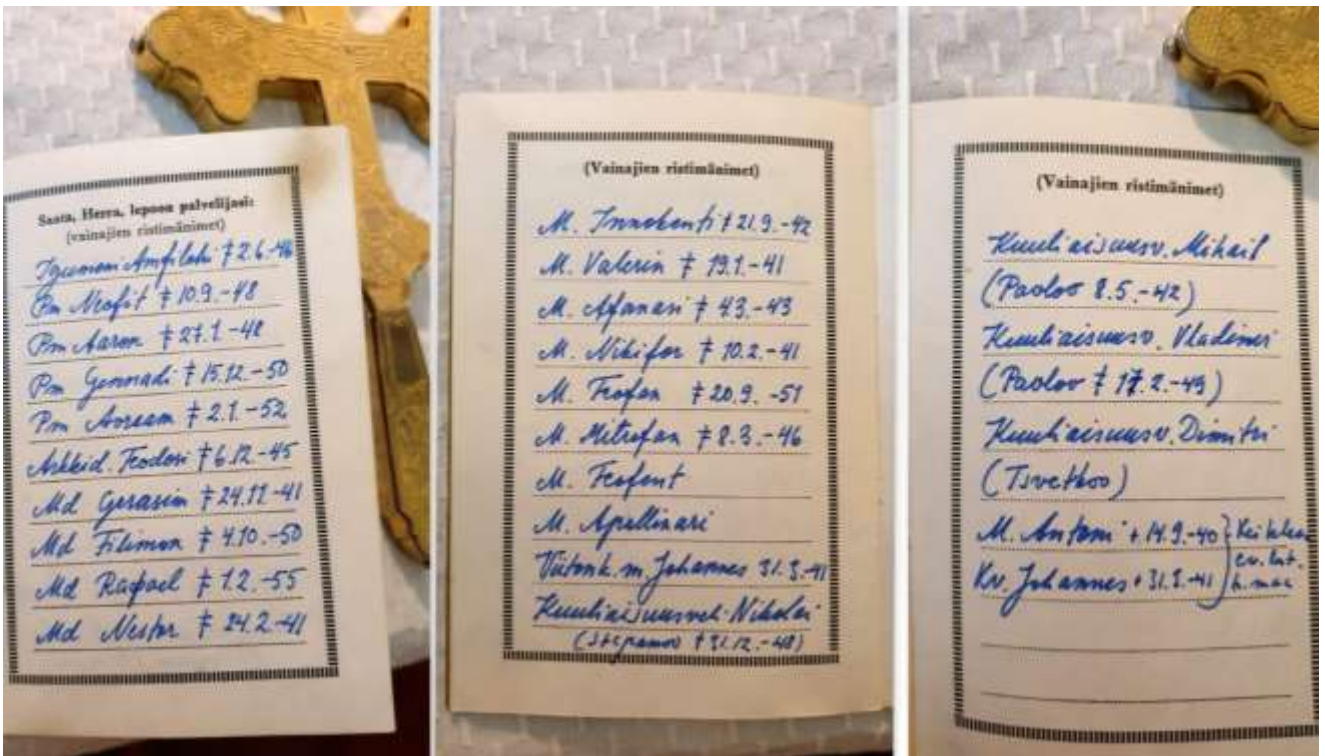 Saata, Herra, lepoon palvelijasi:
(vainajien ristimänimet)
Igumeni Amfilohi ‡ 2.6.-46
Pm Neofit ‡ 10.9.-48
Pm Aaron ‡ 27.1.-48
Pm Gennadi ‡ 15.12.-50
Pm Avraam ‡ 2.1.-52
Arkkid. Feodosi ‡ 6.12.-45
Md Gerasim ‡ 24.11-41
Md Filimon ‡ 4.10.-50
Md Rafael ‡ 1.2.-55
Md Nestor ‡ 24.2.-41
(Vainajien ristimänimet)
M. Innokenti ‡ 21.9.-42
M. Valerin ‡ 19.1.-41
M. Afanasi ‡ 4.3.-43
M. Nikifor ‡ 10.2.-41
M. Feofan ‡ 20.9.-51
M. Mitrofan ‡ 8.3.-46
M. Feofont
M. Apollinari
Viitank. m. Johannes 31.3.-41
Kuuliaisuusveli Nikolai
(Stepanov ‡ 31.12.-48)
(Vainajien ristimänimet)
Kuuliaisuusv. Mihail
(Pavlov 8.5.-42)
Kuuliaisuusv. Vladimir
(Pavlov ‡ 17.2.-49)
Kuuliaisuusv. Dimitri
(Tsvetkov)
M. Antoni + 14.9.-40
Kv. Johannes + 31.3.-41
ev. lut.
h. maa